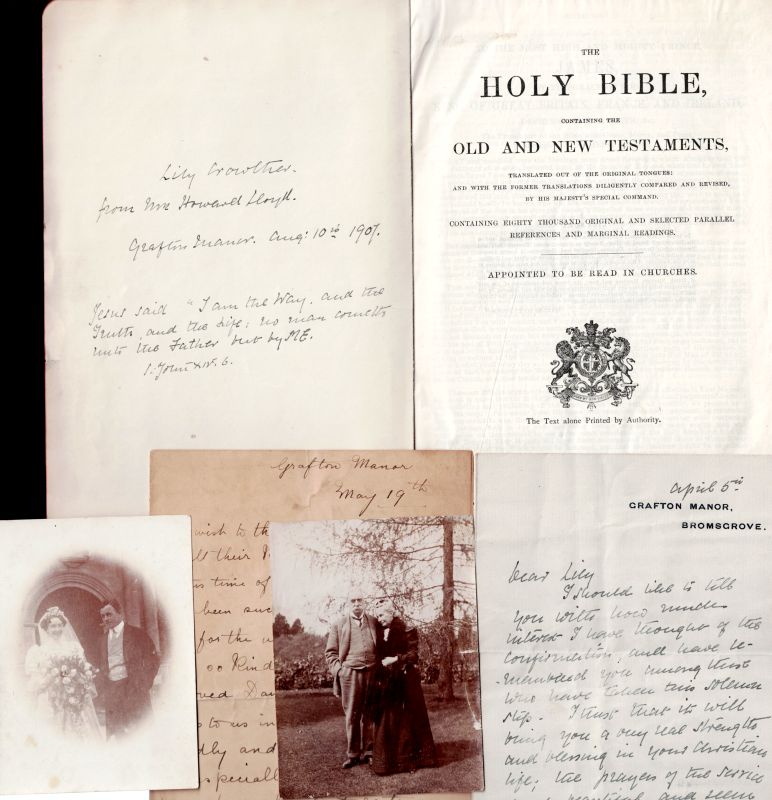 Lily Crowther.
from Mrs Howard Lloyd.
Grafton Manor. Aug: 10th 1907.
Jesus said "I am the Way, and the
Truth, and the Life; no man cometh
unto the Father but by ME.
S. John XIV. 6.
THE
HOLY BIBLE,
CONTAINING THE
OLD AND NEW TESTAMENTS,
TRANSLATED OUT OF THE ORIGINAL TONGUES:
AND WITH THE FORMER TRANSLATIONS DILIGENTLY COMPARED AND REVISED,
BY HIS MAJESTY'S SPECIAL COMMAND.
CONTAINING EIGHTY THOUSAND ORIGINAL AND SELECTED PARALLEL
REFERENCES AND MARGINAL READINGS.
APPOINTED TO BE READ IN CHURCHES.
The Text alone Printed by Authority.
Grafton Manor
May 19th
wish to th
their
time of
been suc
for the
oo Kind
ved Dau
s to us in
dly and
speciall
April 5th
GRAFTON MANOR,
BROMSGROVE.
Dear Lily
I should like to tell
you with how much
interest I have thought of the
confirmation, and have re-
-membered you among those
who have taken this solemn
step. I trust that it will
bring you a very real strength
and blessing in your Christian
life; the prayers of the service
and seem